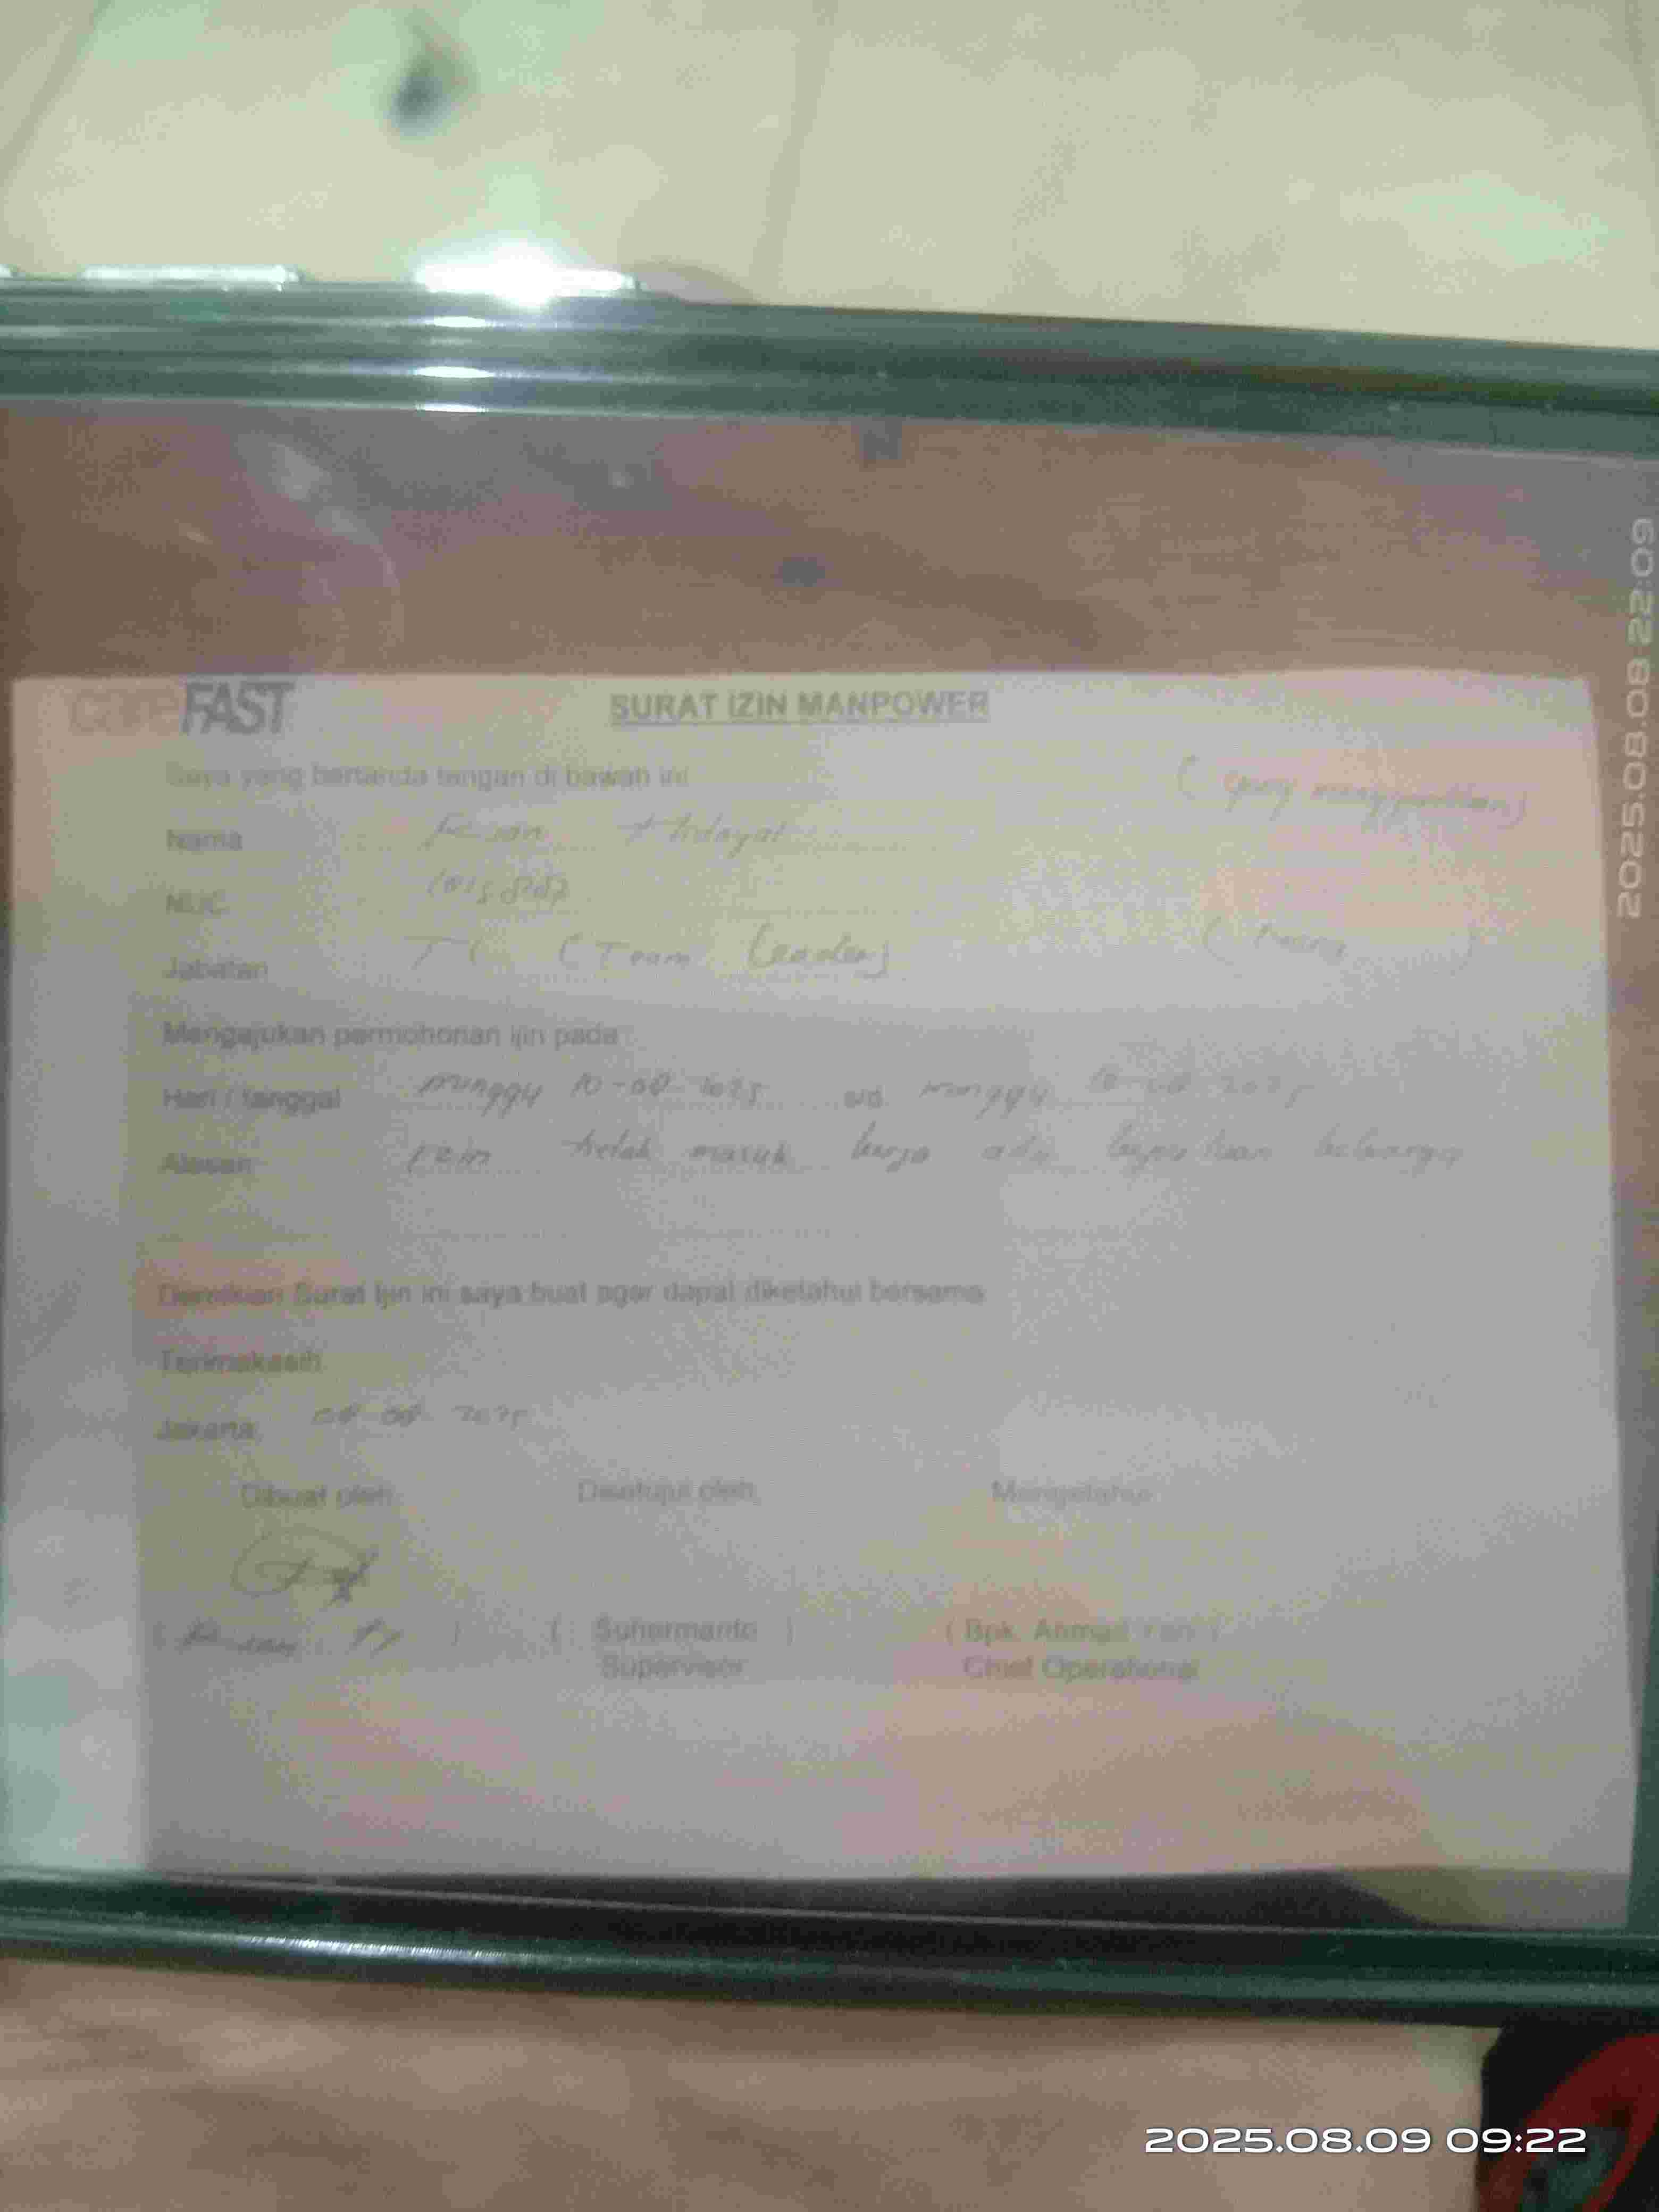 careFAST
SURAT IZIN MANPOWER
Saya yang bertanda tangan di bawah ini
(yang menggantikan)
Nama Hidayat
NUC
Jabatan TL (Team Leader)
Mengajukan permohonan ijin pada :
Hari / tanggal minggy 10-08-2025 s/d minggy 10-08-2025
Alasan izin masuk kerja ada keluarga
Demikian Surat Ijin ini saya buat agar dapat diketahui bersama
Terimakasih
Jakarta, 08-08-2025
Dibuat oleh, Disetujui oleh, Mengetahui
( ) ( Suhermanto ) ( Bpk. Ahmad )
Supervisor Chief Operational
2025.08.08 22:09
2025.08.09 09:22